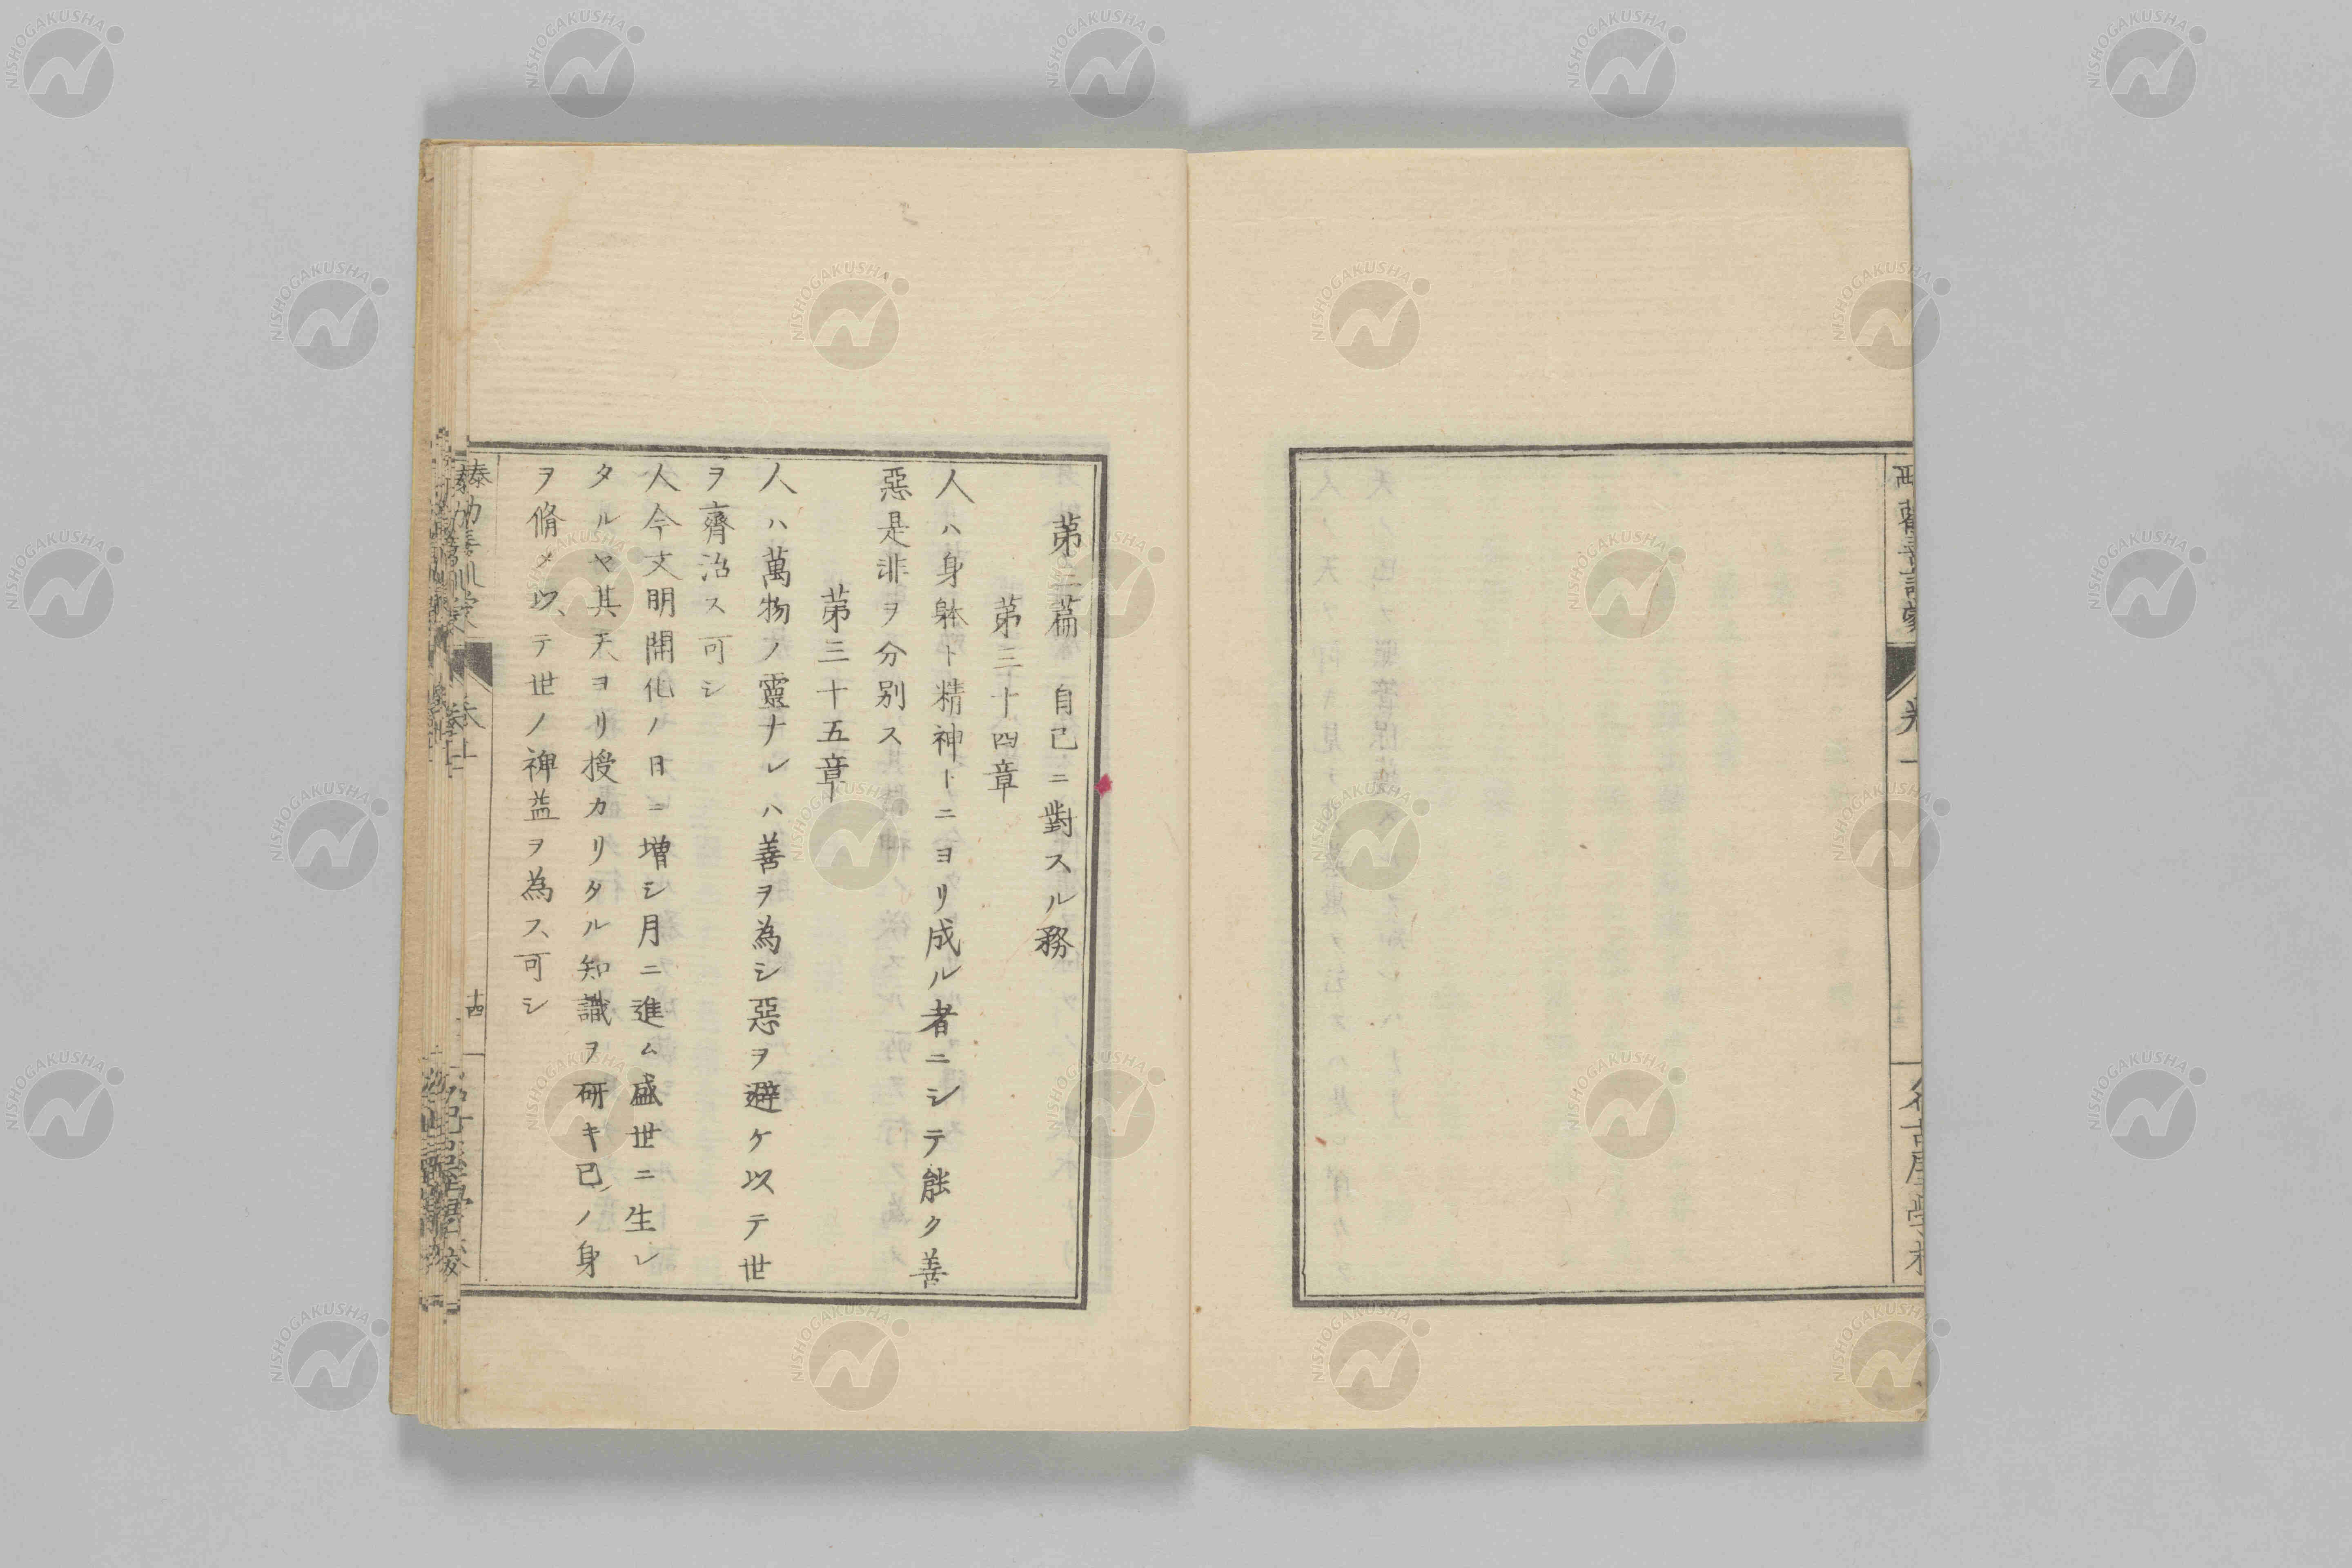 第二篇 自己ニ對スル務
第三十四章
人ハ身躰ト精神トニヨリ成ル者ニシテ能ク善
惡是非ヲ分別ス
第三十五章
人ハ萬物ノ靈ナレハ善ヲ為シ惡ヲ避ケ以テ世
ヲ齊治ス可シ
人今文明開化ノ日ニ增シ月ニ進ム盛世ニ生レ
タルヤ其天ヨリ授カリタル知識ヲ研キ己ノ身
ヲ脩メ以テ世ノ裨益ヲ為ス可シ
十四